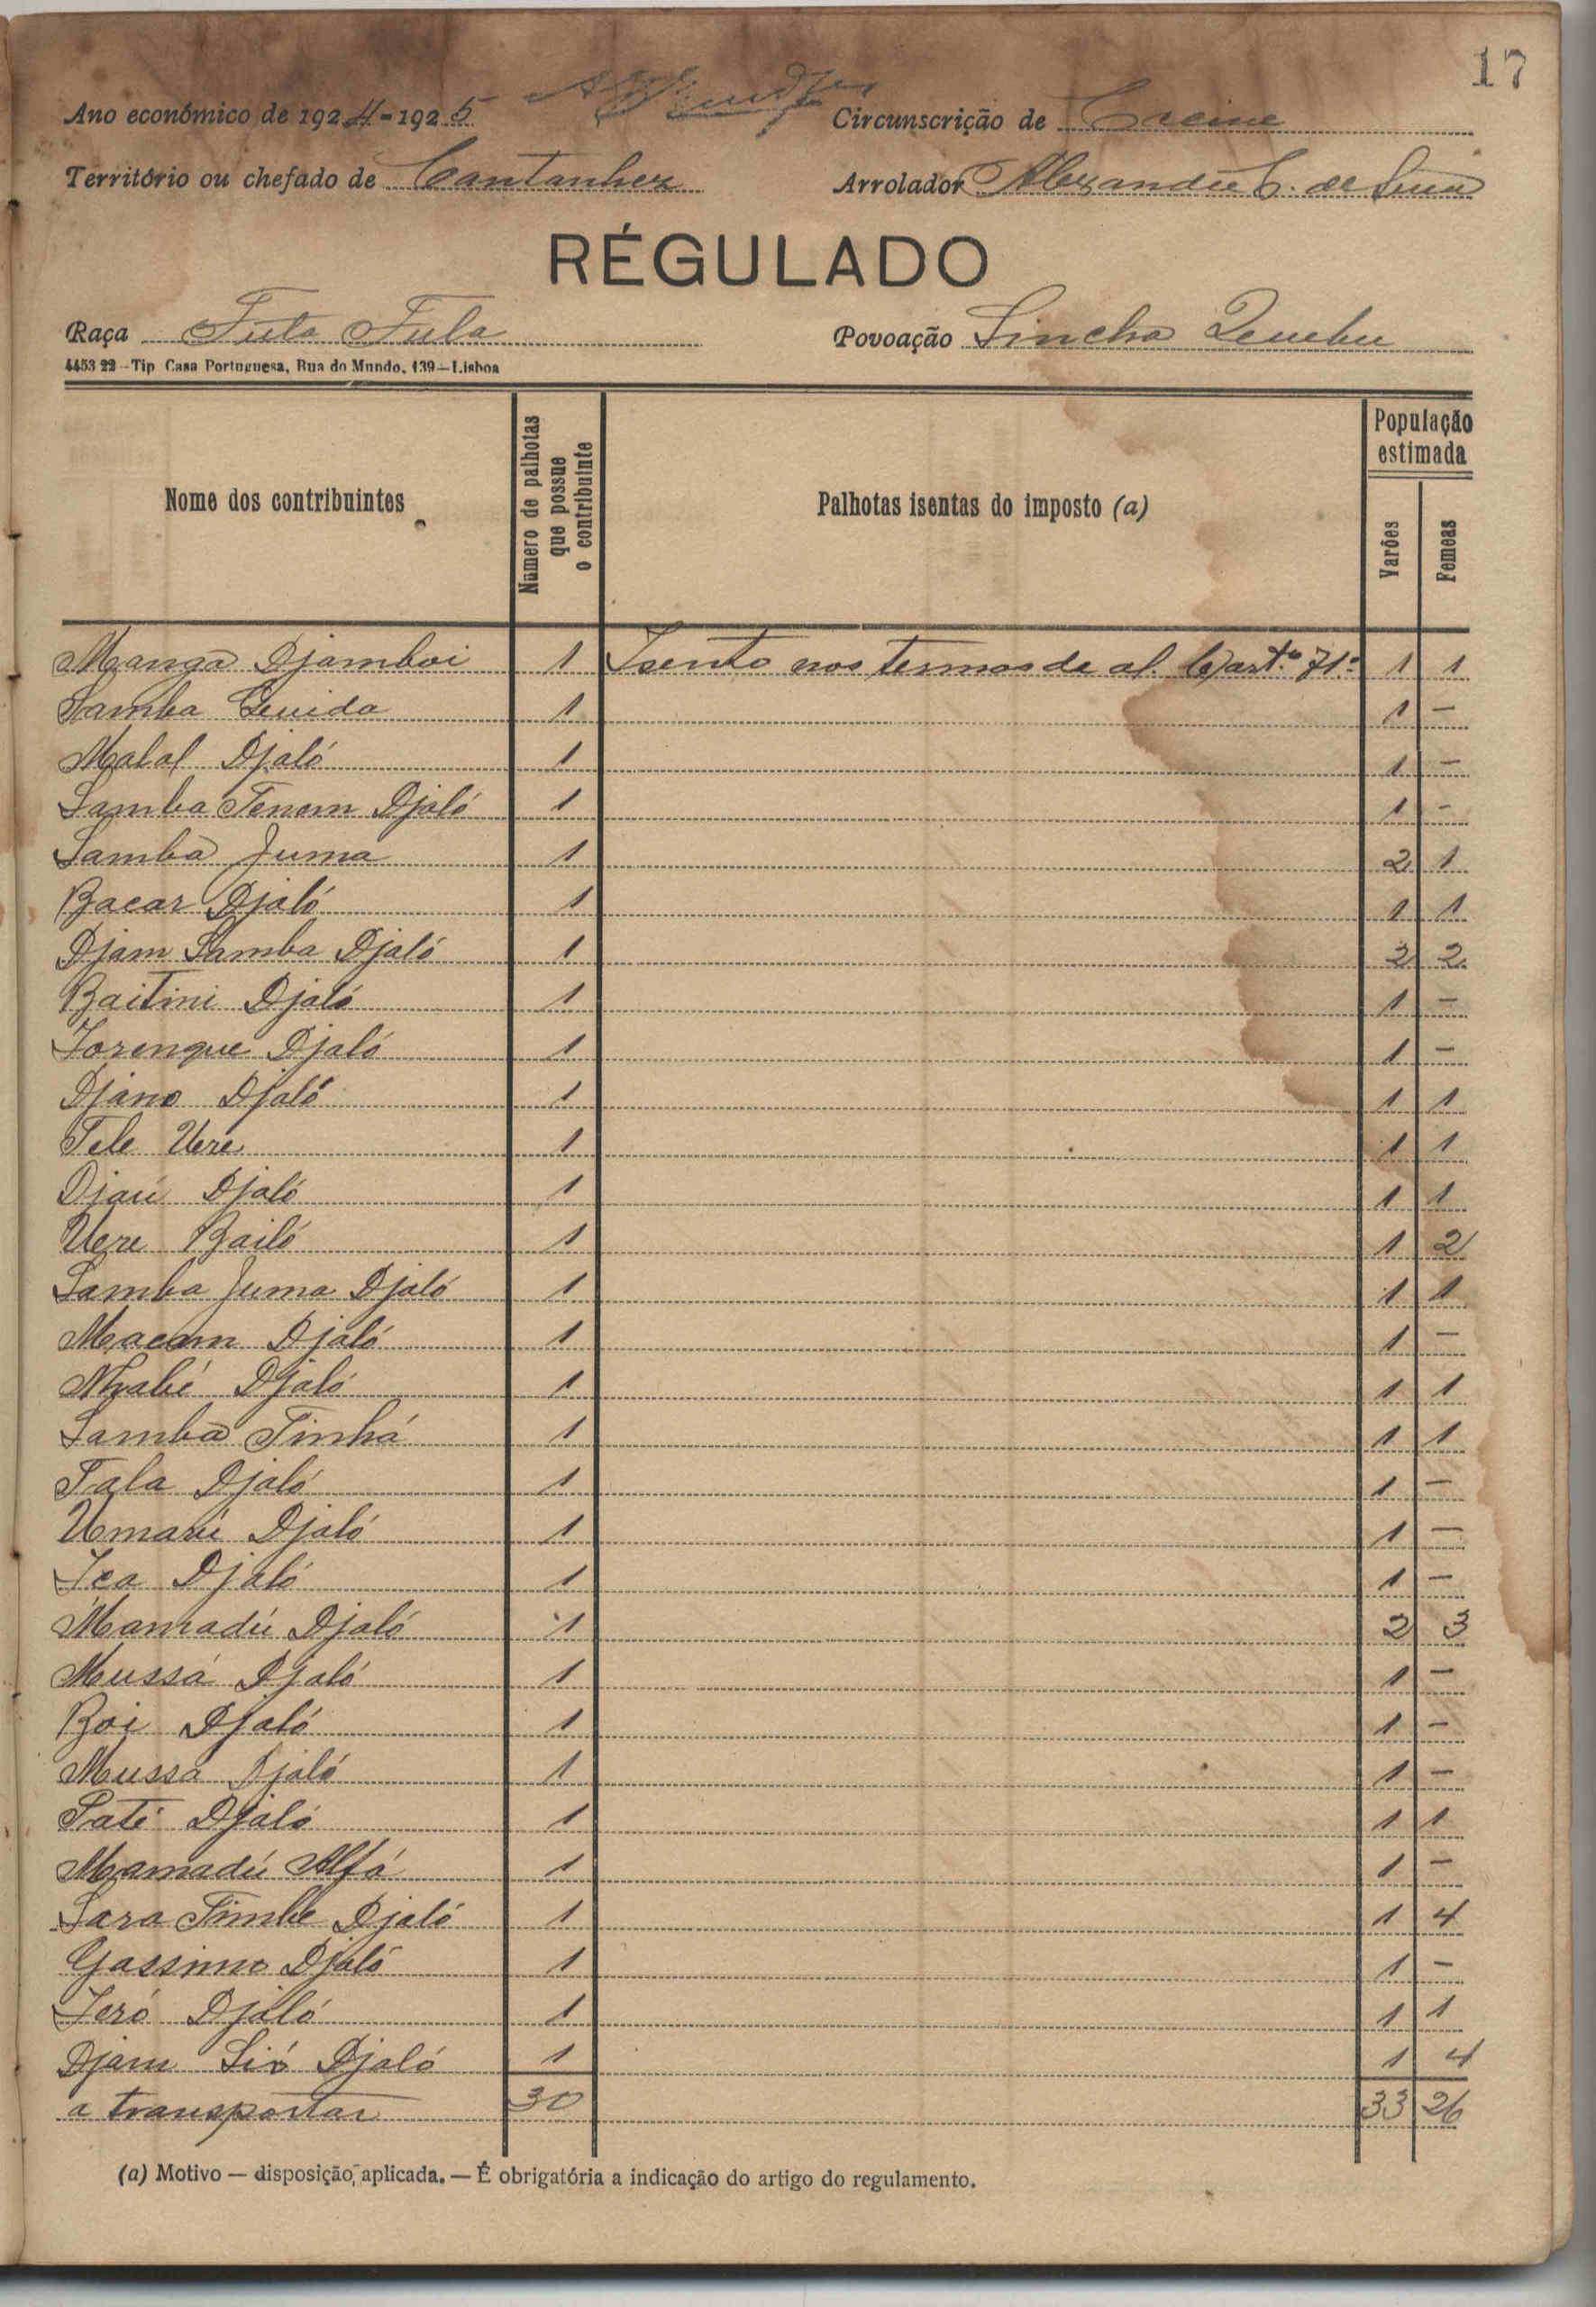 17
Ano económico de 1924-1925 Circunscrição de Cacine
Território ou chefado de Cantanhez Arrolador Alexandre
RÉGULADO
Raça Futa Fula Povoação Sincha Quebu
4453 22 – Tip Casa Portuguesa, Rua do Mundo, 139 – Lisboa
Nome dos contribuintes Número de palhotas que possue o contribuinte Palhotas isentas do imposto (a) População estimada Varões Femeas
Manga Djamboi 1 Isento nos termos de al. b) art.º 71º 1 1
Samba Gueida 1 1 –
Malal Djaló 1 1 –
Samba Tenem Djaló 1 1 –
Samba Juma 1 2 1
Bacar Djaló 1 1 1
Djam Samba Djaló 1 2 2
Baitini Djaló 1 1 –
Iorenque Djaló 1 1 –
Djano Djaló 1 1 1
Tele Uere 1 1 1
Djaú Djaló 1 1 1
Uere Bailó 1 1 2
Samba Juma Djaló 1 1 1
Macam Djaló 1 1 –
Nhabé Djaló 1 1 1
Samba Tinhá 1 1 1
Tala Djaló 1 1 –
Umarú Djaló 1 1 –
Iea Djaló 1 1 –
Mamadú Djaló 1 2 3
Mussá Djaló 1 1 –
Boi Djaló 1 1 –
Mussa Djaló 1 1 –
Paté Djaló 1 1 1
Mamadú Alfá 1 1 –
Sara Timbe Djaló 1 1 4
Gassimo Djaló 1 1 –
Ieró Djaló 1 1 1
Djam Sió Djaló 1 1 4
a transportar 30 33 26
(a) Motivo — disposição, aplicada. — É obrigatória a indicação do artigo do regulamento.